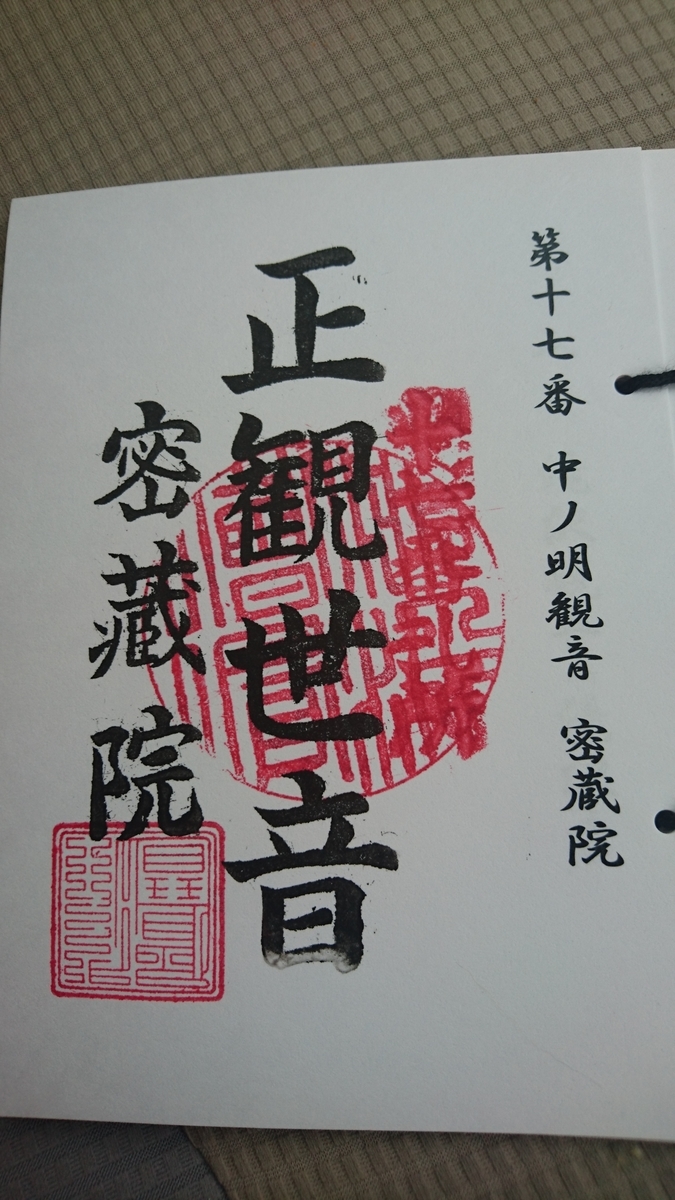 第十七番 中ノ明観音 密蔵院
正観世音
密蔵院